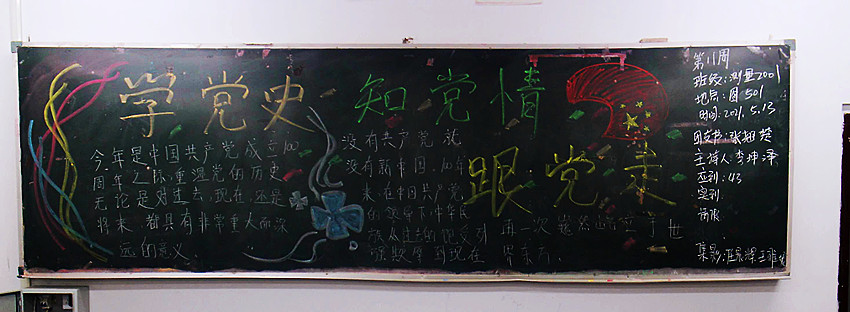 学党史 知党情
跟党走
今年是中国共产党成立100
周年之际,重温党的历史
无论是对过去,现在,还是
将来,都具有非常重大而深
远的意义
没有共产党就
没有新中国.100年
来在中国共产党
的领导下中华民
族从过去的饱受列
强欺辱到现在
再一次巍然屹立于世
界东方.
第11周
班级:测量2001
地点:图501
时间:2021.5.13
团支书:
主持人:李坤泽
应到:43
实到: